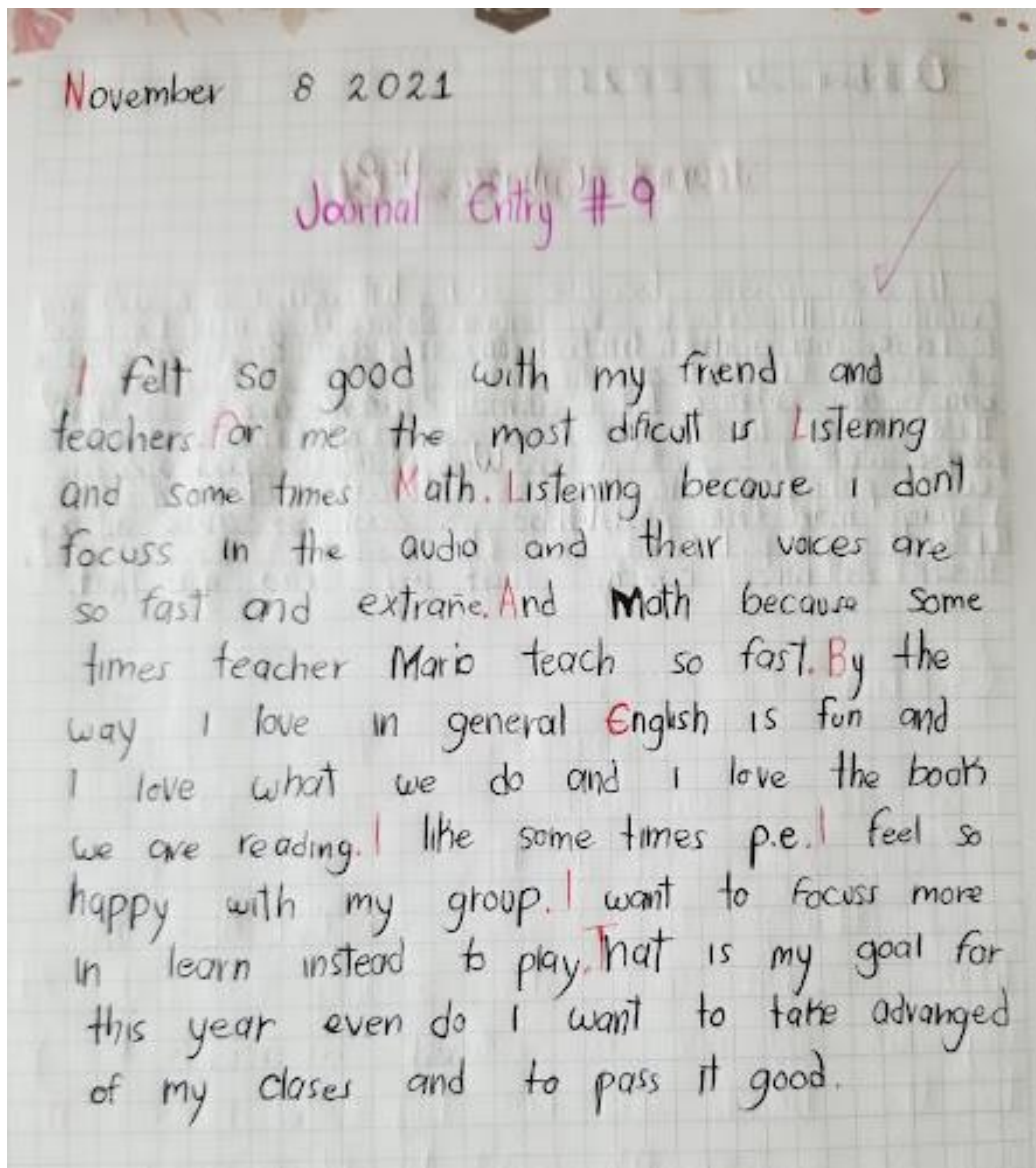 November 8 2021
Journal Entry #9
I felt so good with my friend and
teachers. For me the most dificult is Listening
and some times Math. Listening because i don't
focuss in the audio and their voices are
so fast and extrañe. And Math because some
times teacher Mario teach so fast. By the
way I love in general English is fun and
I love what we do and i love the book
we are reading. I like some times p.e. I feel so
happy with my group. I want to focuss more
in learn instead to play. That is my goal for
this year even do I want to take advanged
of my clases and to pass it good.